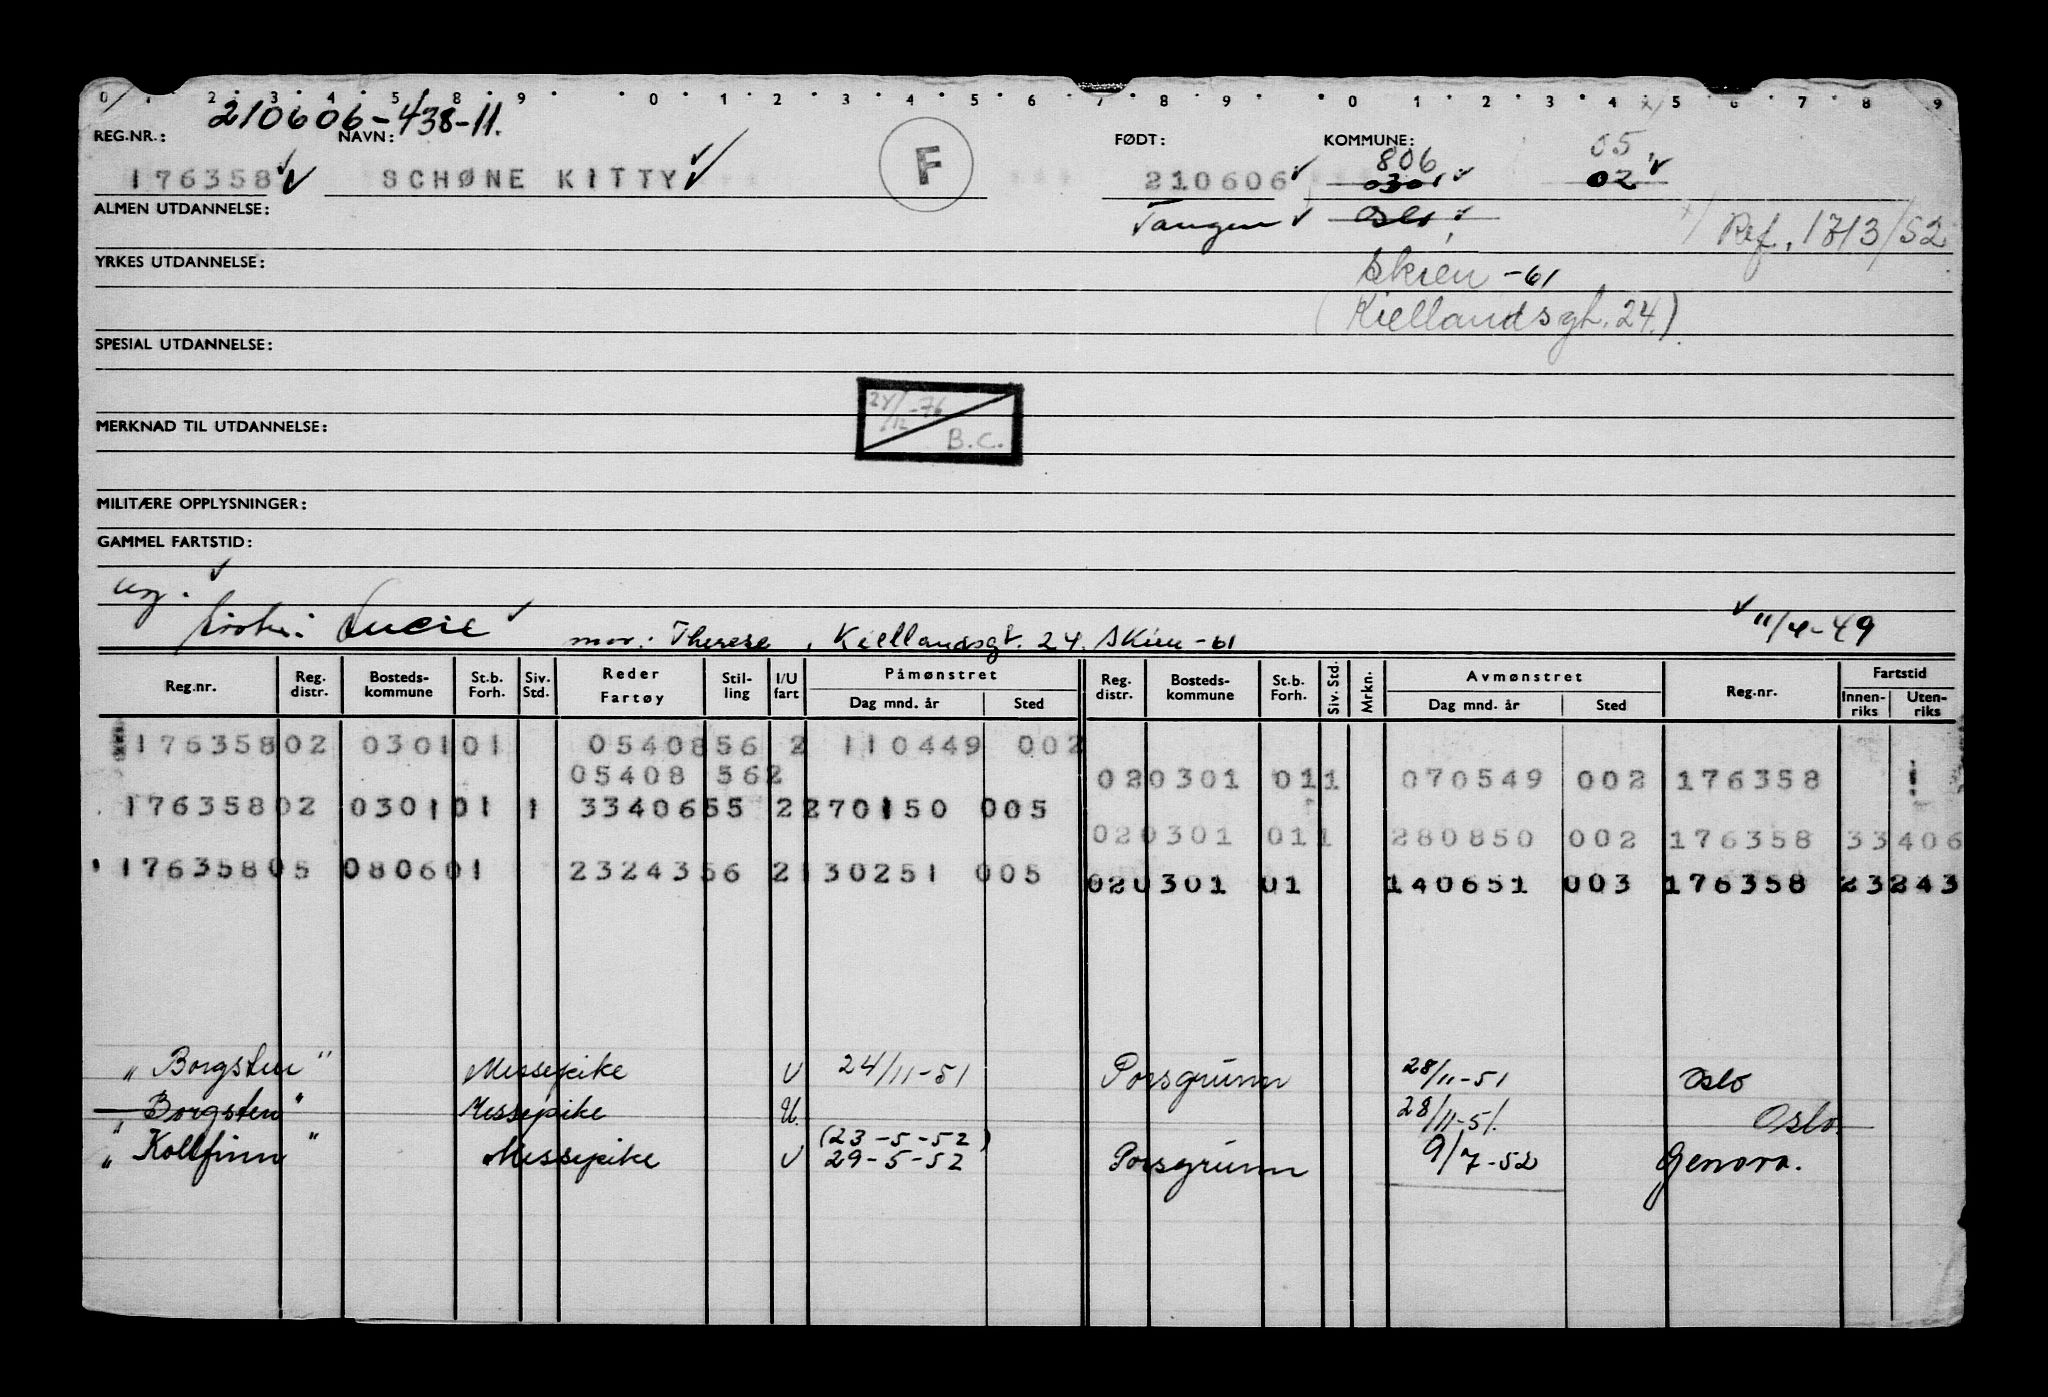 0 1 2 3 4 5 8 9 0 1 2 3 4 5 6 7 8 9 0 1 2 3 4 5 6 7 8 9
210606-438-11.
REG.NR.: NAVN: FØDT: KOMMUNE:
806 05
176358 SCHØNE KITTY F 210606 0301 02
ALMEN UTDANNELSE: Tangen Oslo Ref. 1713/52
YRKES UTDANNELSE: Skien -61
(Kiellandsgt. 24.)
SPESIAL UTDANNELSE:
24/12 -76
MERKNAD TIL UTDANNELSE: B.C.
MILITÆRE OPPLYSNINGER:
GAMMEL FARTSTID:
ug.
Lucie 11/4-49
mor: Therese, Kiellandsgt. 24. Skien -61
Reg.nr. Reg. distr. Bosteds-kommune St.b. Forh. Siv. Std. Reder Fartøy Stil-ling I/U fart Påmønstret Dag mnd. år Sted Reg. distr. Bosteds-kommune St.b. Forh. Siv. Std. Mrkn. Avmønstret Dag mnd. år Sted Reg.nr. Fartstid Innen-riks Uten-riks
176358 02 0301 01 05408 56 2 110449 002
05408 56 2 02 0301 01 1 070549 002 176358
176358 02 0301 01 1 33406 55 2 270150 005
02 0301 01 1 280850 002 176358 33406
176358 05 0806 01 23243 56 2 130251 005
02 0301 01 140651 003 176358 23243
„Borgsten" Messepike U 24/11-51 Porsgrunn 28/11-51 Oslo
„Borgsten" Messepike U. 28/11-51. Oslo.
(23-5-52)
„Kollfinn" Messepike U 29-5-52 Porsgrunn 9/7-52 Genova.